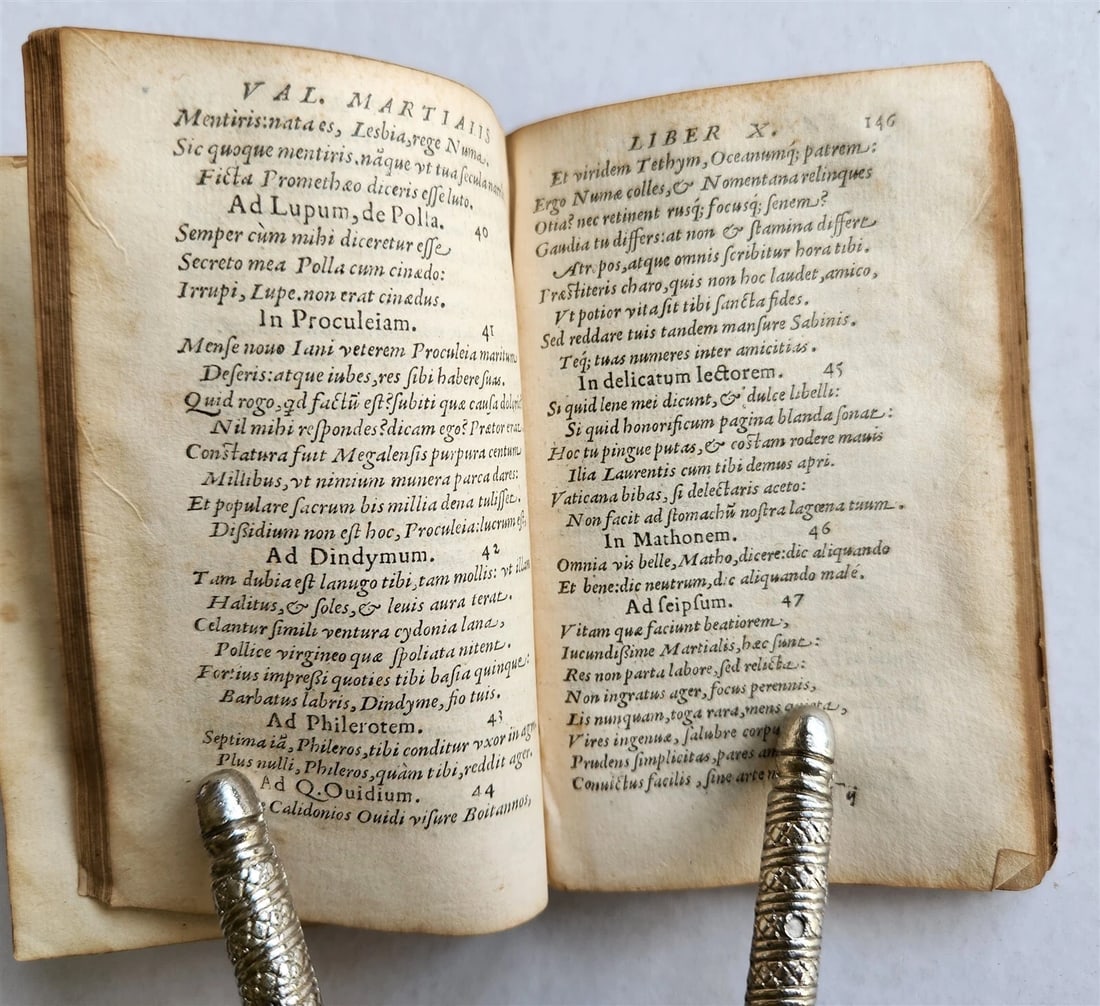 VAL. MARTIALIS
Mentiris: nata es, Lesbia, rege Numa.
Sic quoque mentiris. nãque vt tua secula
Ficta Promethæo diceris esse luto.
Ad Lupum, de Polla. 40
Semper cùm mihi diceretur esse
Secreto mea Polla cum cinædo:
Irrupi, Lupe. non erat cinædus.
In Proculeiam. 41
Mense nouo Iani veterem Proculeia maritum
Deseris: atque iubes, res sibi habere suas.
Quid rogo, qd factũ est? subiti quæ causa
Nil mihi respondes? dicam ego? Prætor erat
Constatura fuit Megalensis purpura centum
Millibus, vt nimium munera parca dares:
Et populare sacrum bis millia dena tulisset.
Dißidium non est hoc, Proculeia: lucrum est.
Ad Dindymum. 42
Tam dubia est lanugo tibi, tam mollis: vt illam
Halitus, & soles, & leuis aura terat.
Celantur simili ventura cydonia lana,
Pollice virgineo quæ spoliata nitent.
Fortius impreßi quoties tibi basia quinque:
Barbatus labris, Dindyme, fio tuis.
Ad Philerotem. 43
Septima iã, Phileros, tibi conditur vxor in agro
Plus nulli, Phileros, quàm tibi, reddit ager.
Ad Q. Ouidium. 44
Calidonios Ouidi visure Boitannos,
LIBER X. 146
Et viridem Tethym, Oceanumq; patrem:
Ergo Numæ colles, & Nomentana relinques
Otia? nec retinent rusq; focusq; senem?
Gaudia tu differs: at non & stamina differt
Atropos, atque omnis scribitur hora tibi.
Præstiteris charo, quis non hoc laudet, amico,
Vt potior vita sit tibi sancta fides.
Sed reddare tuis tandem mansure Sabinis.
Teq; tuas numeres inter amicitias.
In delicatum lectorem. 45
Si quid lene mei dicunt, & dulce libelli:
Si quid honorificum pagina blanda sonat:
Hoc tu pingue putas, & costam rodere mauis
Ilia Laurentis cum tibi demus apri.
Vaticana bibas, si delectaris aceto:
Non facit ad stomachũ nostra lagœna tuum.
In Mathonem. 46
Omnia vis belle, Matho, dicere: dic aliquando
Et bene: dic neutrum, dic aliquando malé.
Ad seipsum. 47
Vitam quæ faciunt beatiorem,
Iucundißime Martialis, hæc sunt:
Res non parta labore, sed relicta:
Non ingratus ager, focus perennis,
Lis nunquam, toga rara, mens quieta,
Vires ingenuæ, salubre corpu
Prudens simplicitas, pares am
Conuictus facilis, sine arte
ij